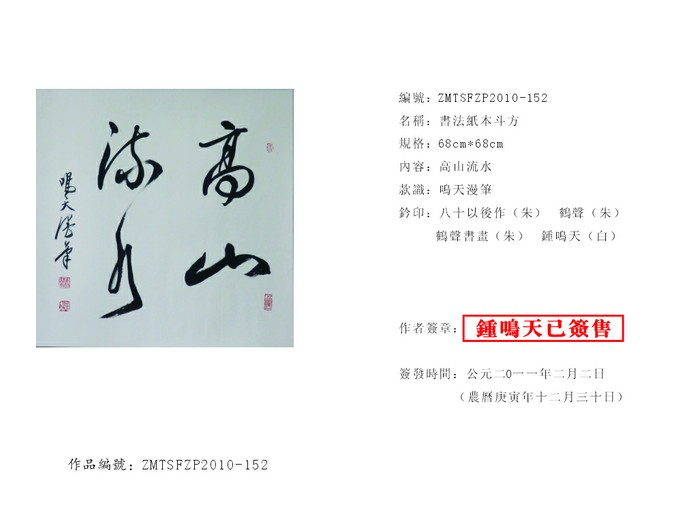 高山
流水
鳴天漫筆
編號：ZMTSFZP2010-152
名稱：書法紙本斗方
規格：68cm*68cm
內容：高山流水
款識：鳴天漫筆
鈐印：八十以後作（朱） 鶴聲（朱）
鶴聲書畫（朱） 鍾鳴天（白）
作者簽章：鍾鳴天已簽售
簽發時間：公元二0一一年二月二日
（農曆庚寅年十二月三十日）
作品編號：ZMTSFZP2010-152